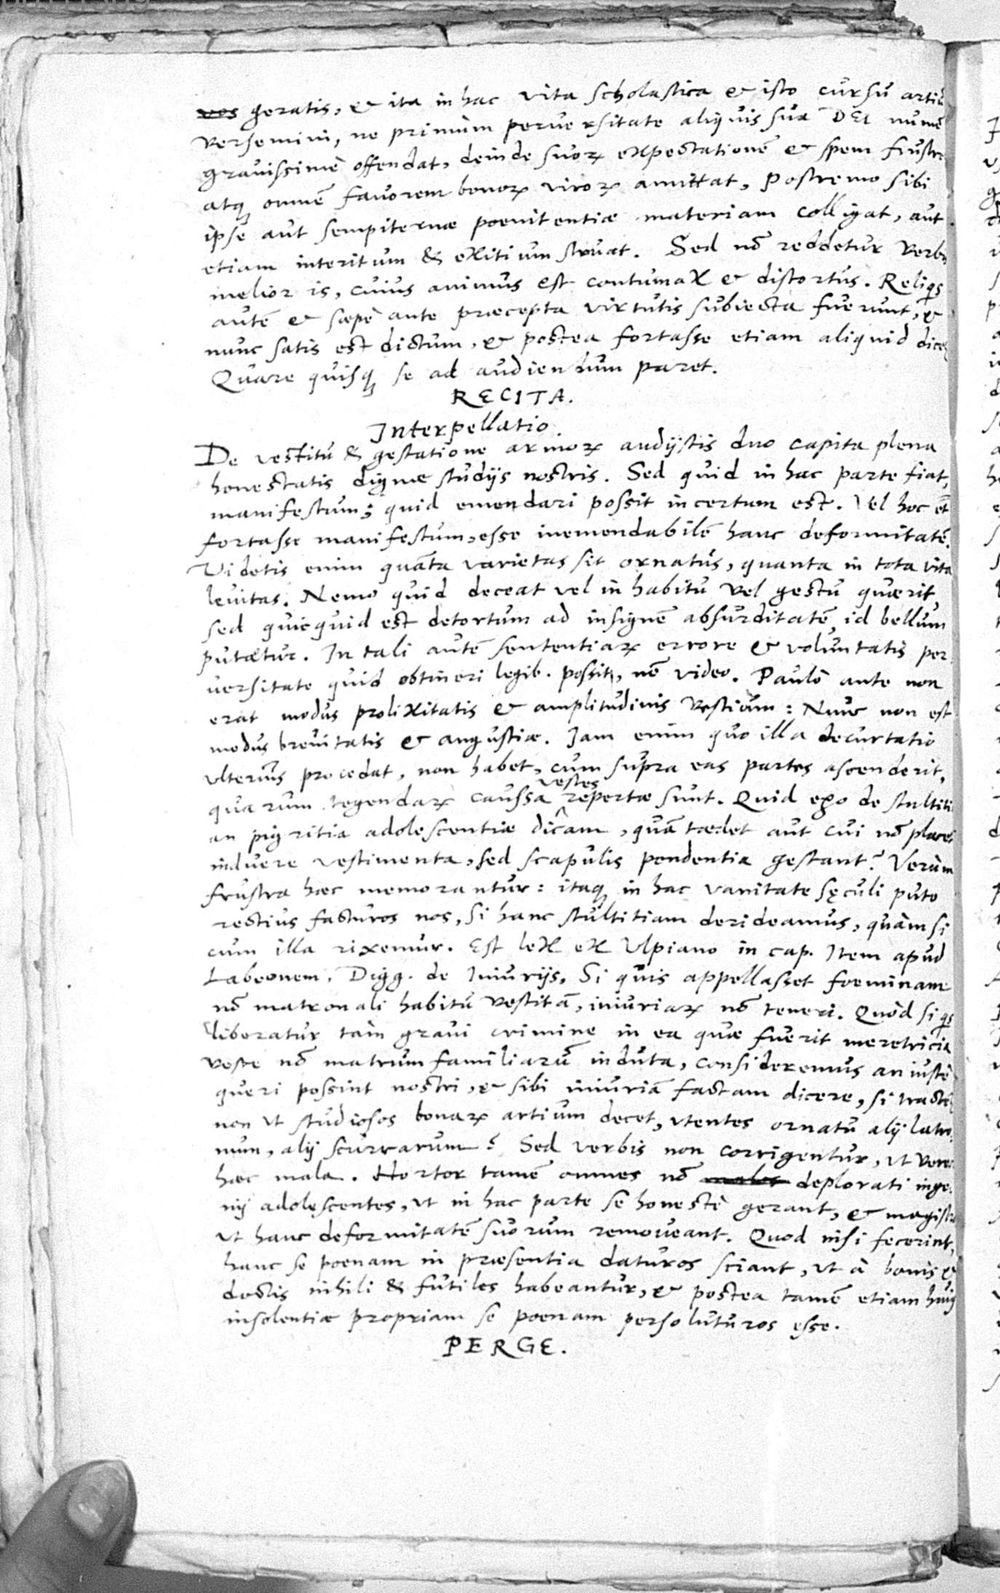 vos geratis, & ita in hac vita scholastica & isto cursu artiū
versemini, ne primùm peruersitate aliquis sua DEI numē
grauissimè offendat, deinde suorꝝ expectationē & spem frustre
atqꝫ omnē fauorem bonorꝝ virorꝝ amittat, Postremo sibi
ipse aut sempiternæ poenitentiæ materiam colligat, aut
etiam interitum & exitium struat. Sed nō reddetur verbis
melior is, cuius animus est contumax & distortus. Reliqs
autē & sæpè ante præcepta virtutis subiecta fuerunt, &
nunc satis est dictum, & postea fortasse etiam aliquid dice
Quare quisqꝫ se ad audiendum paret.
RECITA.
Interpellatio.
De vestitu & gestatione armorꝝ audijstis duo capita plena
honestatis dignæ studijs nostris. Sed quid in hac parte fiat,
manifestum; quid emendari possit incertum est. Vel hoc et
fortasse manifestum, esse inemendabilē hanc deformitatē.
Videtis enim quāta varietas sit ornatus, quanta in tota vita
leuitas. Nemo quid deceat vel in habitu vel gestu quærit
sed quicquid est detortum ad insignē absurditatē, id bellum
putatur. In tali autē sententiarꝝ errore & voluntatis per
uersitate quid obtineri legib. possit, nō video. Paulò ante non
erat modus prolixitatis & amplitudinis vestium: Nunc non est
modus breuitatis & angustiæ. Jam enim quo illa decurtatio
vlterius procedat, non habet, cum supra eas partes ascenderit,
quarum tegendarꝝ caussa vestes repertæ sunt. Quid ego de stultiti
an pigritia adolescentiæ dicam, quā tædet aut cui nō placet
induere vestimenta, sed scapulis pendentia gestant? Verùm
frustra hæc memorantur: itaqꝫ in hac vanitate sęculi puto
rectius facturos nos, si hanc stultitiam derideamus, quàm si
cum illa rixemur. Est lex ex Vlpiano in cap. Item apud
Labeonem. Digg. de Iniurijs, Si quis appellasset foeminam
nō matronali habitu vestitā, iniuriarꝝ nō teneri. Quòd si qs
liberatur tam graui crimine in ea quæ fuerit meretricia
veste nō matrumfamiliarū induta, consideremus an iustè
queri possint nostri, & sibi iniuriā factam dicere, si tracte
non vt studiosos bonarꝝ artium decet, vtentes ornatu alij latro
num, alij scurrarum? Sed verbis non corrigentur, vt vere
hæc mala. Hortor tamē omnes nō deplorati inge
nij adolescentes, vt in hac parte se honestè gerant, & magistr
vt hanc deformitatē suorum remoueant. Quod nisi fecerint,
hanc se poenam in præsentia daturos sciant, vt à bonis &
doctis nihili & futiles habeantur, & postea tamē etiam huiꝰ
insolentiæ propriam se poenam persoluturos esse.
PERGE.